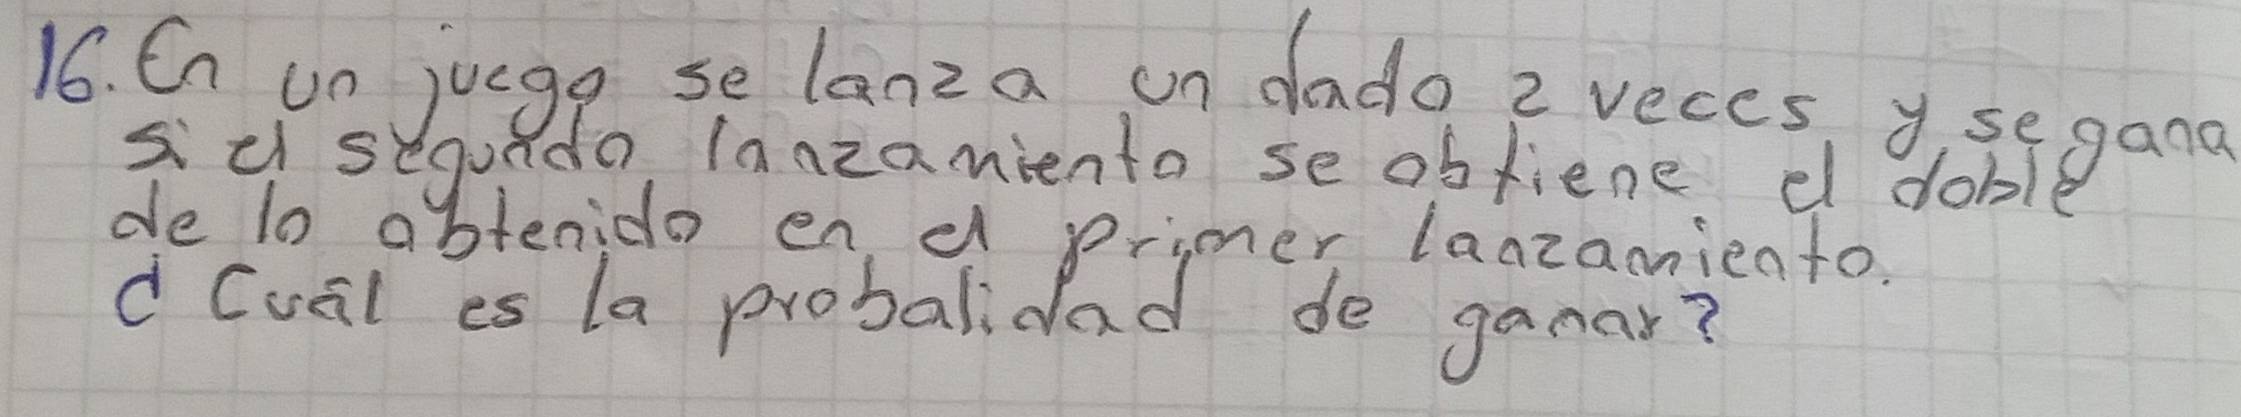 16. En un juego se lanza un dado 2 veces y se gana
si el segundo lanzamiento se obtiene el doble
de lo obtenido en el primer lanzamiento.
¿ Cuál es la probalidad de ganar?